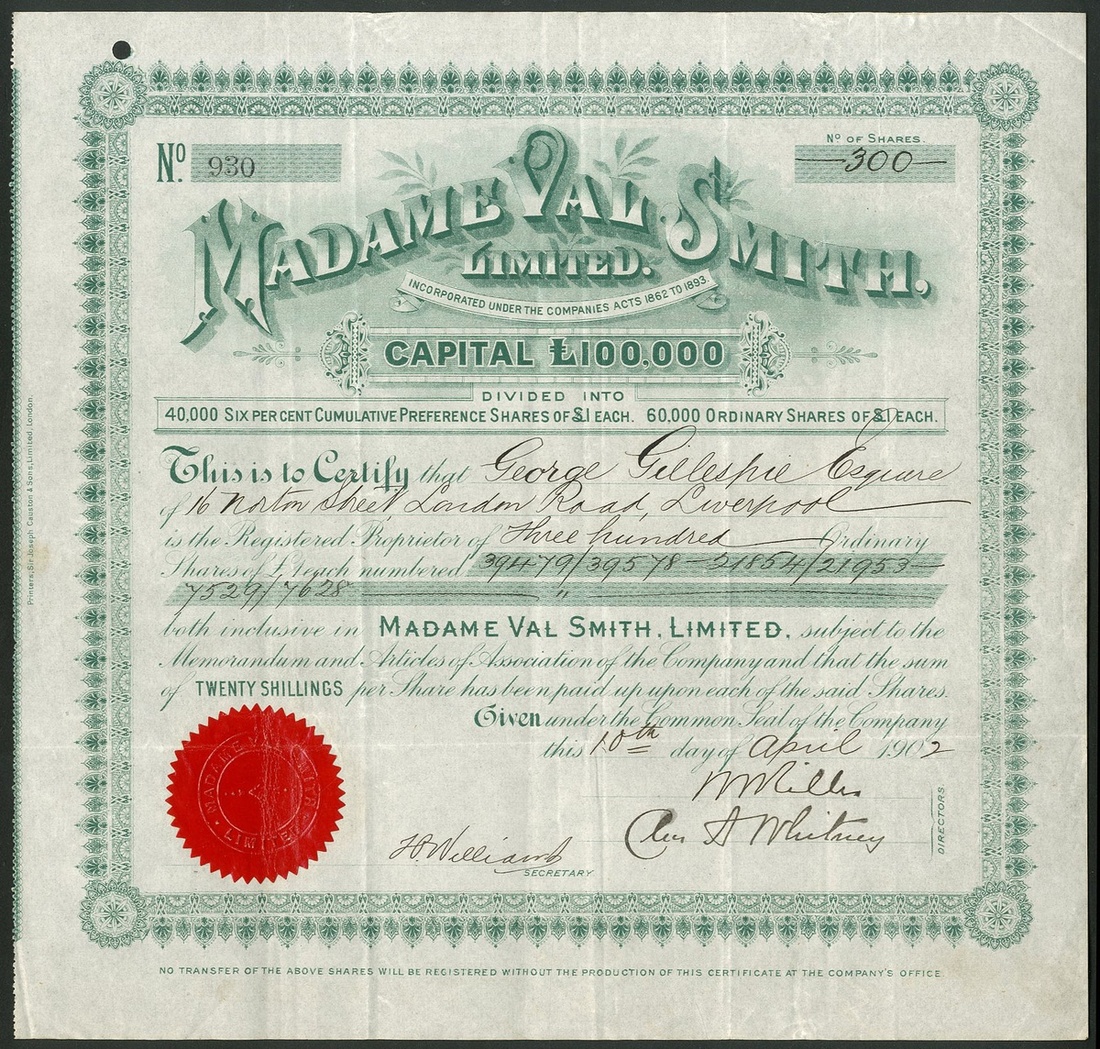 Nº 930
Nº OF SHARES.
300
MADAME VAL SMITH.
LIMITED.
INCORPORATED UNDER THE COMPANIES ACTS 1862 TO 1893.
CAPITAL £100,000
DIVIDED INTO
40,000 SIX PER CENT CUMULATIVE PREFERENCE SHARES OF £1 EACH. 60,000 ORDINARY SHARES OF £1 EACH.
This is to Certify that George Gillespie Esquire
of 16 Norton Street, London Road, Liverpool
is the Registered Proprietor of Three hundred Ordinary
Shares of £1 each numbered 39479/39578 — 21854/21953 —
7529/7628 "
both inclusive in MADAME VAL SMITH, LIMITED. subject to the
Memorandum and Articles of Association of the Company and that the sum
of TWENTY SHILLINGS per Share has been paid up upon each of the said Shares.
Given under the Common Seal of the Company
this 10th day of April 1902
Whitney
DIRECTORS
H. Williams
SECRETARY
MADAME VAL SMITH LIMITED
NO TRANSFER OF THE ABOVE SHARES WILL BE REGISTERED WITHOUT THE PRODUCTION OF THIS CERTIFICATE AT THE COMPANY'S OFFICE
Printers, Sir Joseph Causton & Sons, Limited, London.